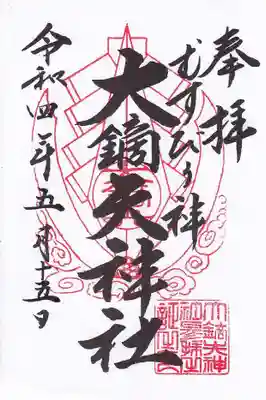 奉拝
むすびの神
大鏑矢神社
令和四年五月十五日